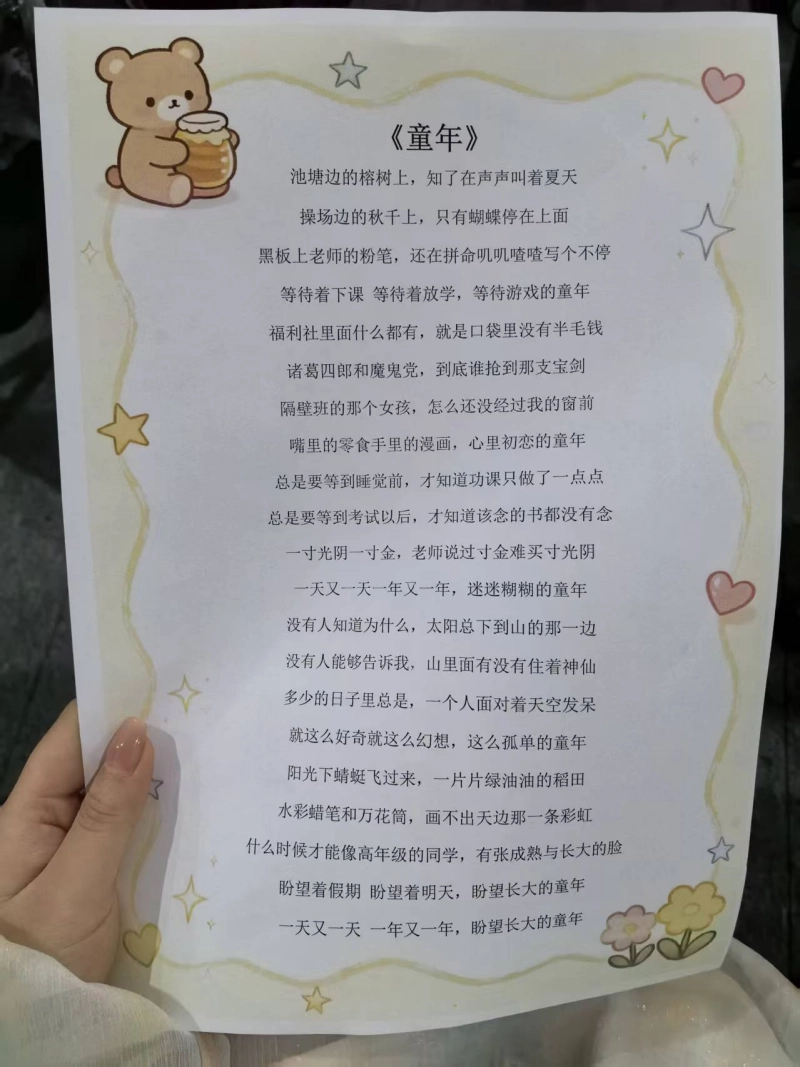 《童年》
池塘边的榕树上，知了在声声叫着夏天
操场边的秋千上，只有蝴蝶停在上面
黑板上老师的粉笔，还在拼命叽叽喳喳写个不停
等待着下课 等待着放学，等待游戏的童年
福利社里面什么都有，就是口袋里没有半毛钱
诸葛四郎和魔鬼党，到底谁抢到那支宝剑
隔壁班的那个女孩，怎么还没经过我的窗前
嘴里的零食手里的漫画，心里初恋的童年
总是要等到睡觉前，才知道功课只做了一点点
总是要等到考试以后，才知道该念的书都没有念
一寸光阴一寸金，老师说过寸金难买寸光阴
一天又一天一年又一年，迷迷糊糊的童年
没有人知道为什么，太阳总下到山的那一边
没有人能够告诉我，山里面有没有住着神仙
多少的日子里总是，一个人面对着天空发呆
就这么好奇就这么幻想，这么孤单的童年
阳光下蜻蜓飞过来，一片片绿油油的稻田
水彩蜡笔和万花筒，画不出天边那一条彩虹
什么时候才能像高年级的同学，有张成熟与长大的脸
盼望着假期 盼望着明天，盼望长大的童年
一天又一天 一年又一年，盼望长大的童年